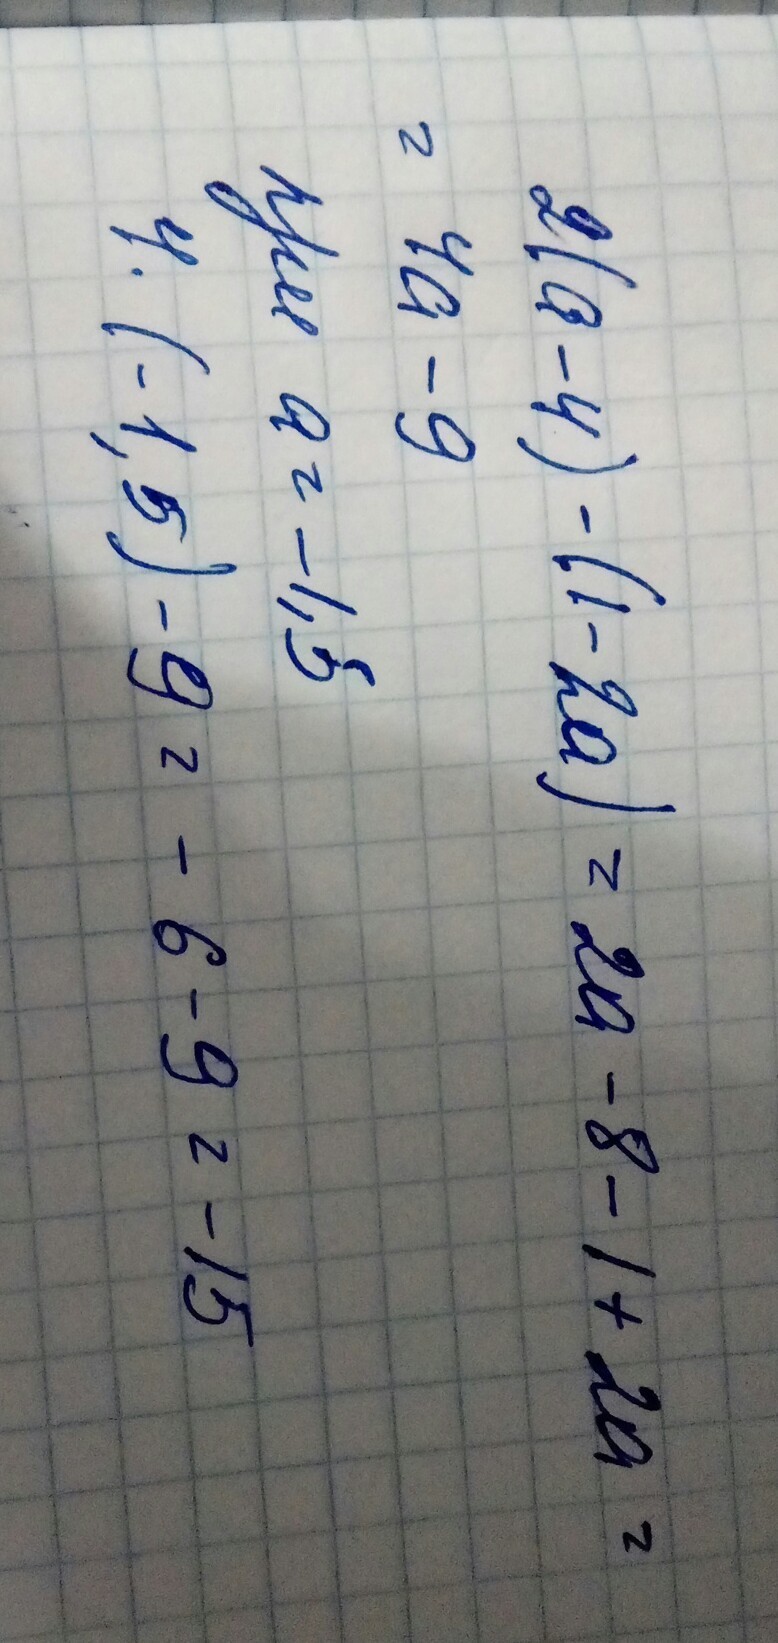 2(a-4)-(1-2a)=2a-8-1+2a=
=4a-9
при a=-1,5
4·(-1,5)-9=-6-9=-15